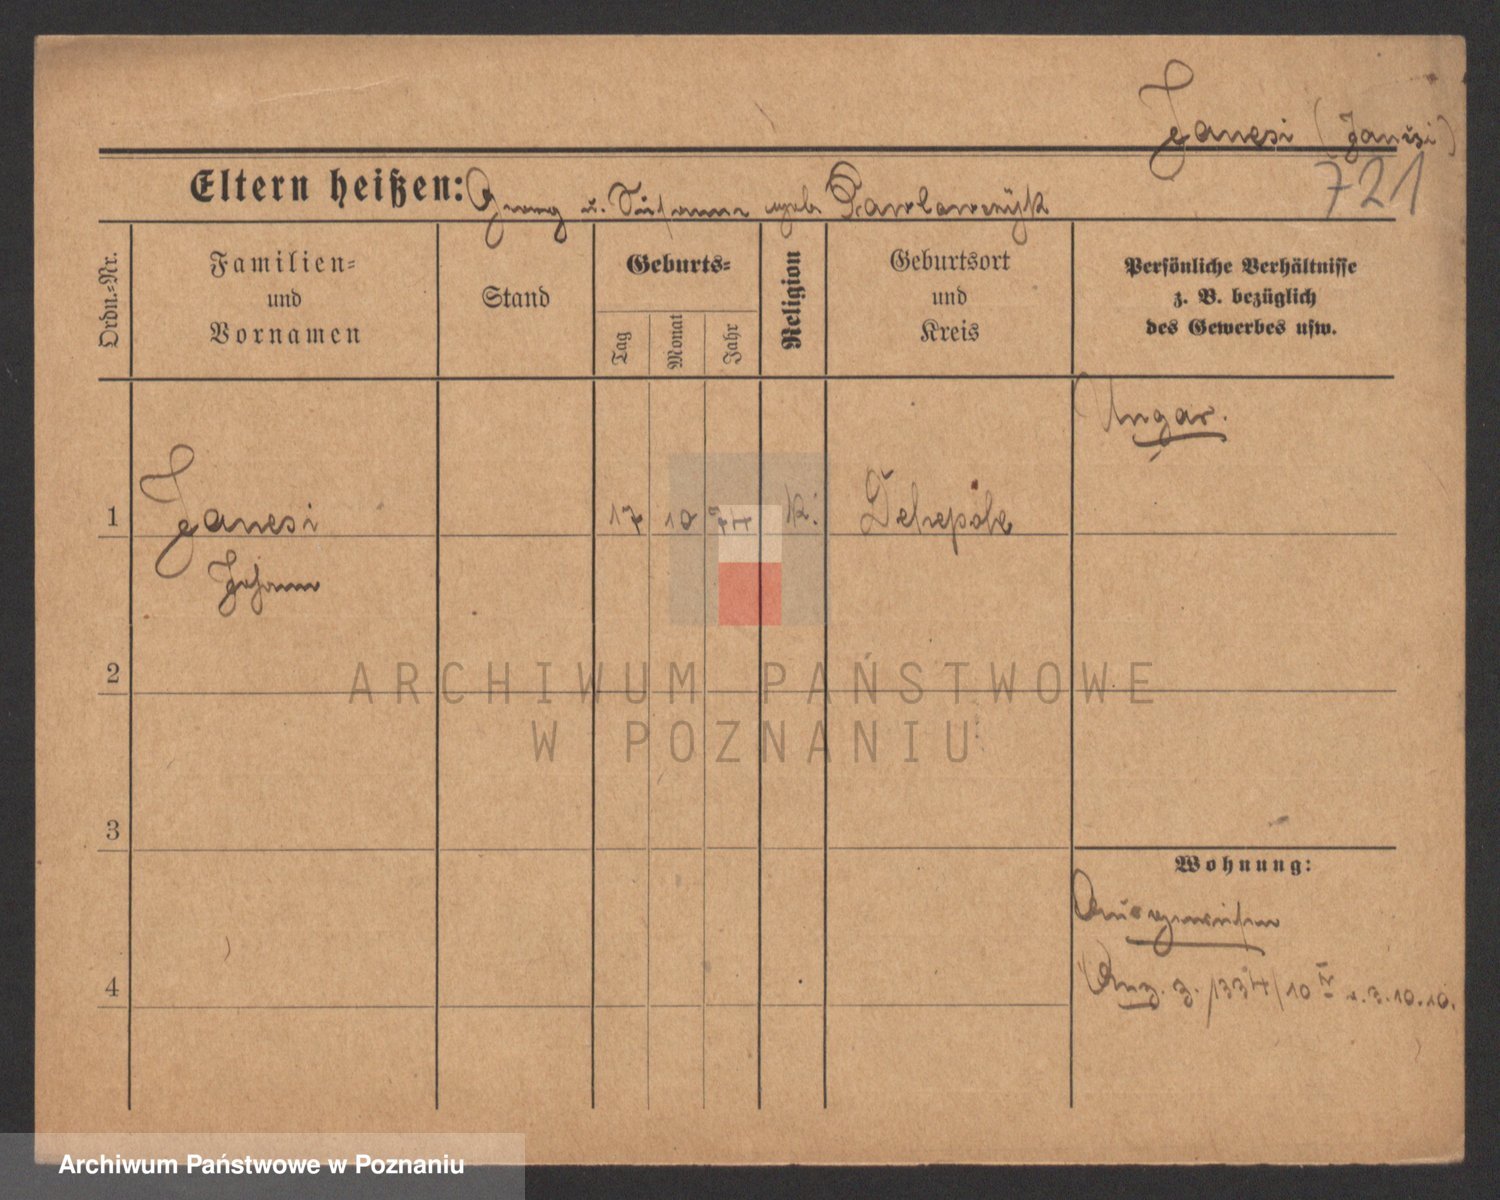 Janesi (Janisi)
721
Eltern heißen: Georg u. Susanna geb. Pawlowczyk
Ordn.-Nr.
Familien-
und
Vornamen
Stand
Geburts-
Tag
Monat
Jahr
Religion
Geburtsort
und
Kreis
Persönliche Verhältnisse
z. B. bezüglich
des Gewerbes usw.
Ungar.
1
Janesi
17 10 77 k.
Johann
2
ARCHIWUM PAŃSTWOWE
W POZNANIU
3
Wohnung:
Ausgewiesen
4
Anz. z. 1334/10 I v. 3.10.10.
Archiwum Państwowe w Poznaniu